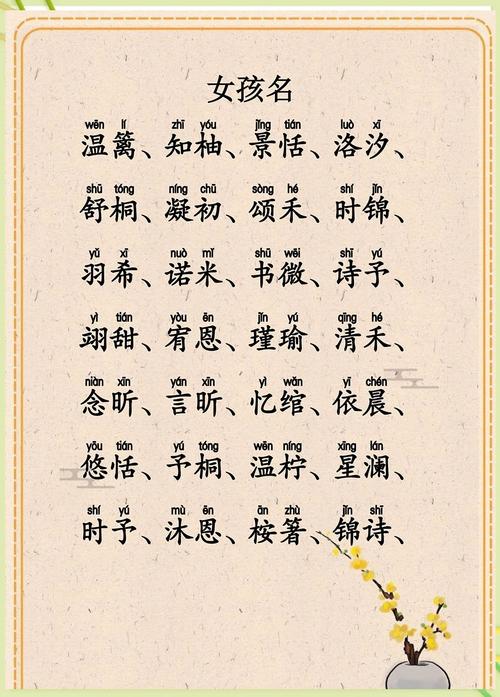 女孩名
wēn lí zhī yóu jǐng tián luò xī
温篱、知柚、景恬、洛汐、
shū tóng níng chū sòng hé shí jǐn
舒桐、凝初、颂禾、时锦、
yǔ xī nuò mǐ shū wēi shī yú
羽希、诺米、书微、诗予、
yì tián yòu ēn jǐn yú qīng hé
翊甜、宥恩、瑾瑜、清禾、
niàn xīn yán xīn yì wǎn yī chén
念昕、言昕、忆绾、依晨、
yōu tián yú tóng wēn níng xīng lán
悠恬、予桐、温柠、星澜、
shí yú mù ēn ān zhù jǐn shī
时予、沐恩、桉箸、锦诗、